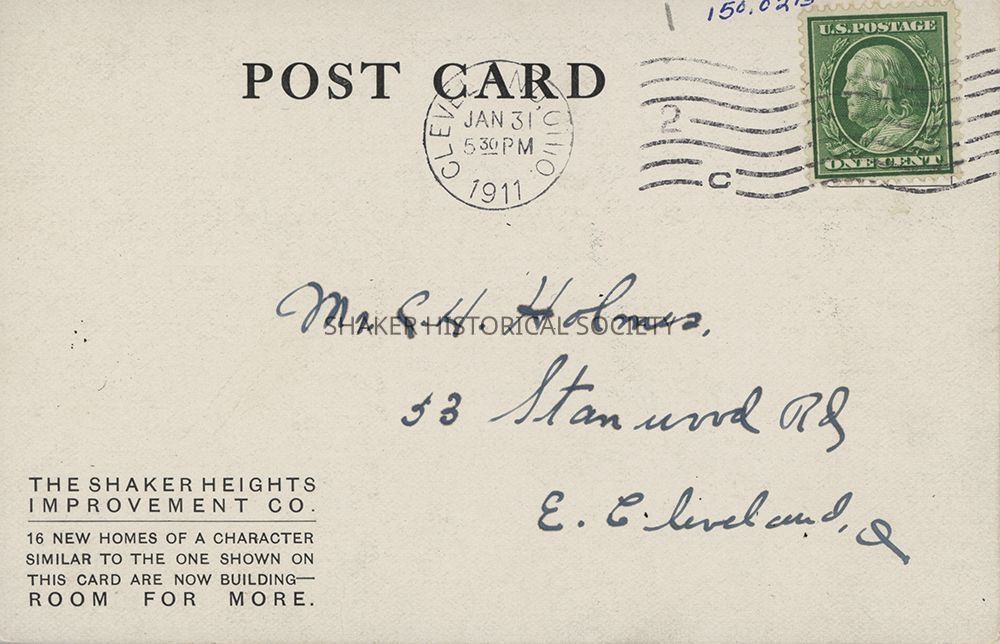 150.02
U.S. POSTAGE
ONE CENT
POST CARD
CLEVELAND, OHIO.
JAN 31
5 30 PM
1911
2
C
Mr. C. H. Holmes,
SHAKER HISTORICAL SOCIETY
53 Stanwood Rd
E. Cleveland, O
THE SHAKER HEIGHTS
IMPROVEMENT CO.
16 NEW HOMES OF A CHARACTER
SIMILAR TO THE ONE SHOWN ON
THIS CARD ARE NOW BUILDING—
ROOM FOR MORE.